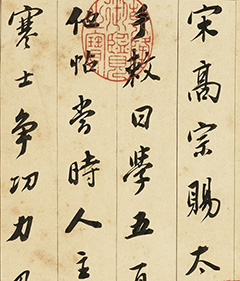 宋高宗賜太
手敕曰學五百
他帖嘗時人主
寒士爭功力